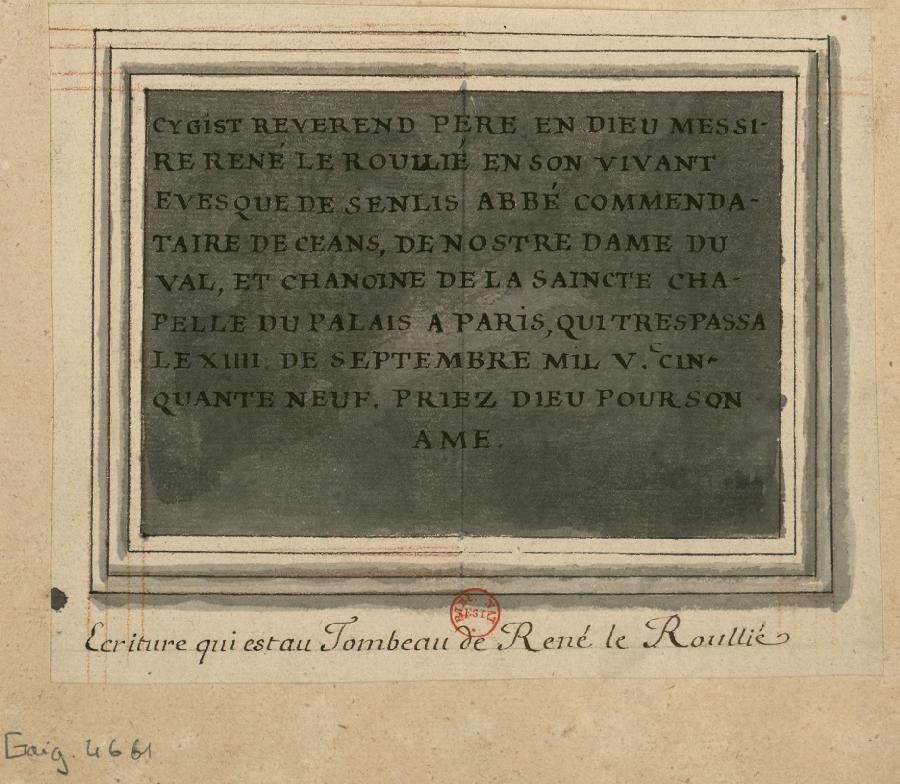 CY GIST REVEREND PERE EN DIEU MESSI-
RE RENÉ LE ROUILLIÉ EN SON VIVANT
EVESQUE DE SENLIS ABBÉ COMMENDA-
TAIRE DE CEANS, DE NOSTRE DAME DU
VAL, ET CHANOINE DE LA SAINCTE CHA-
PELLE DU PALAIS A PARIS, QUI TRESPASSA
LE XIIII. DE SEPTEMBRE MIL V.C CIN-
QUANTE NEUF. PRIEZ DIEU POUR SON
AME.
EST
Ecriture qui est au Tombeau de René le Roullié
Gaig. 4661